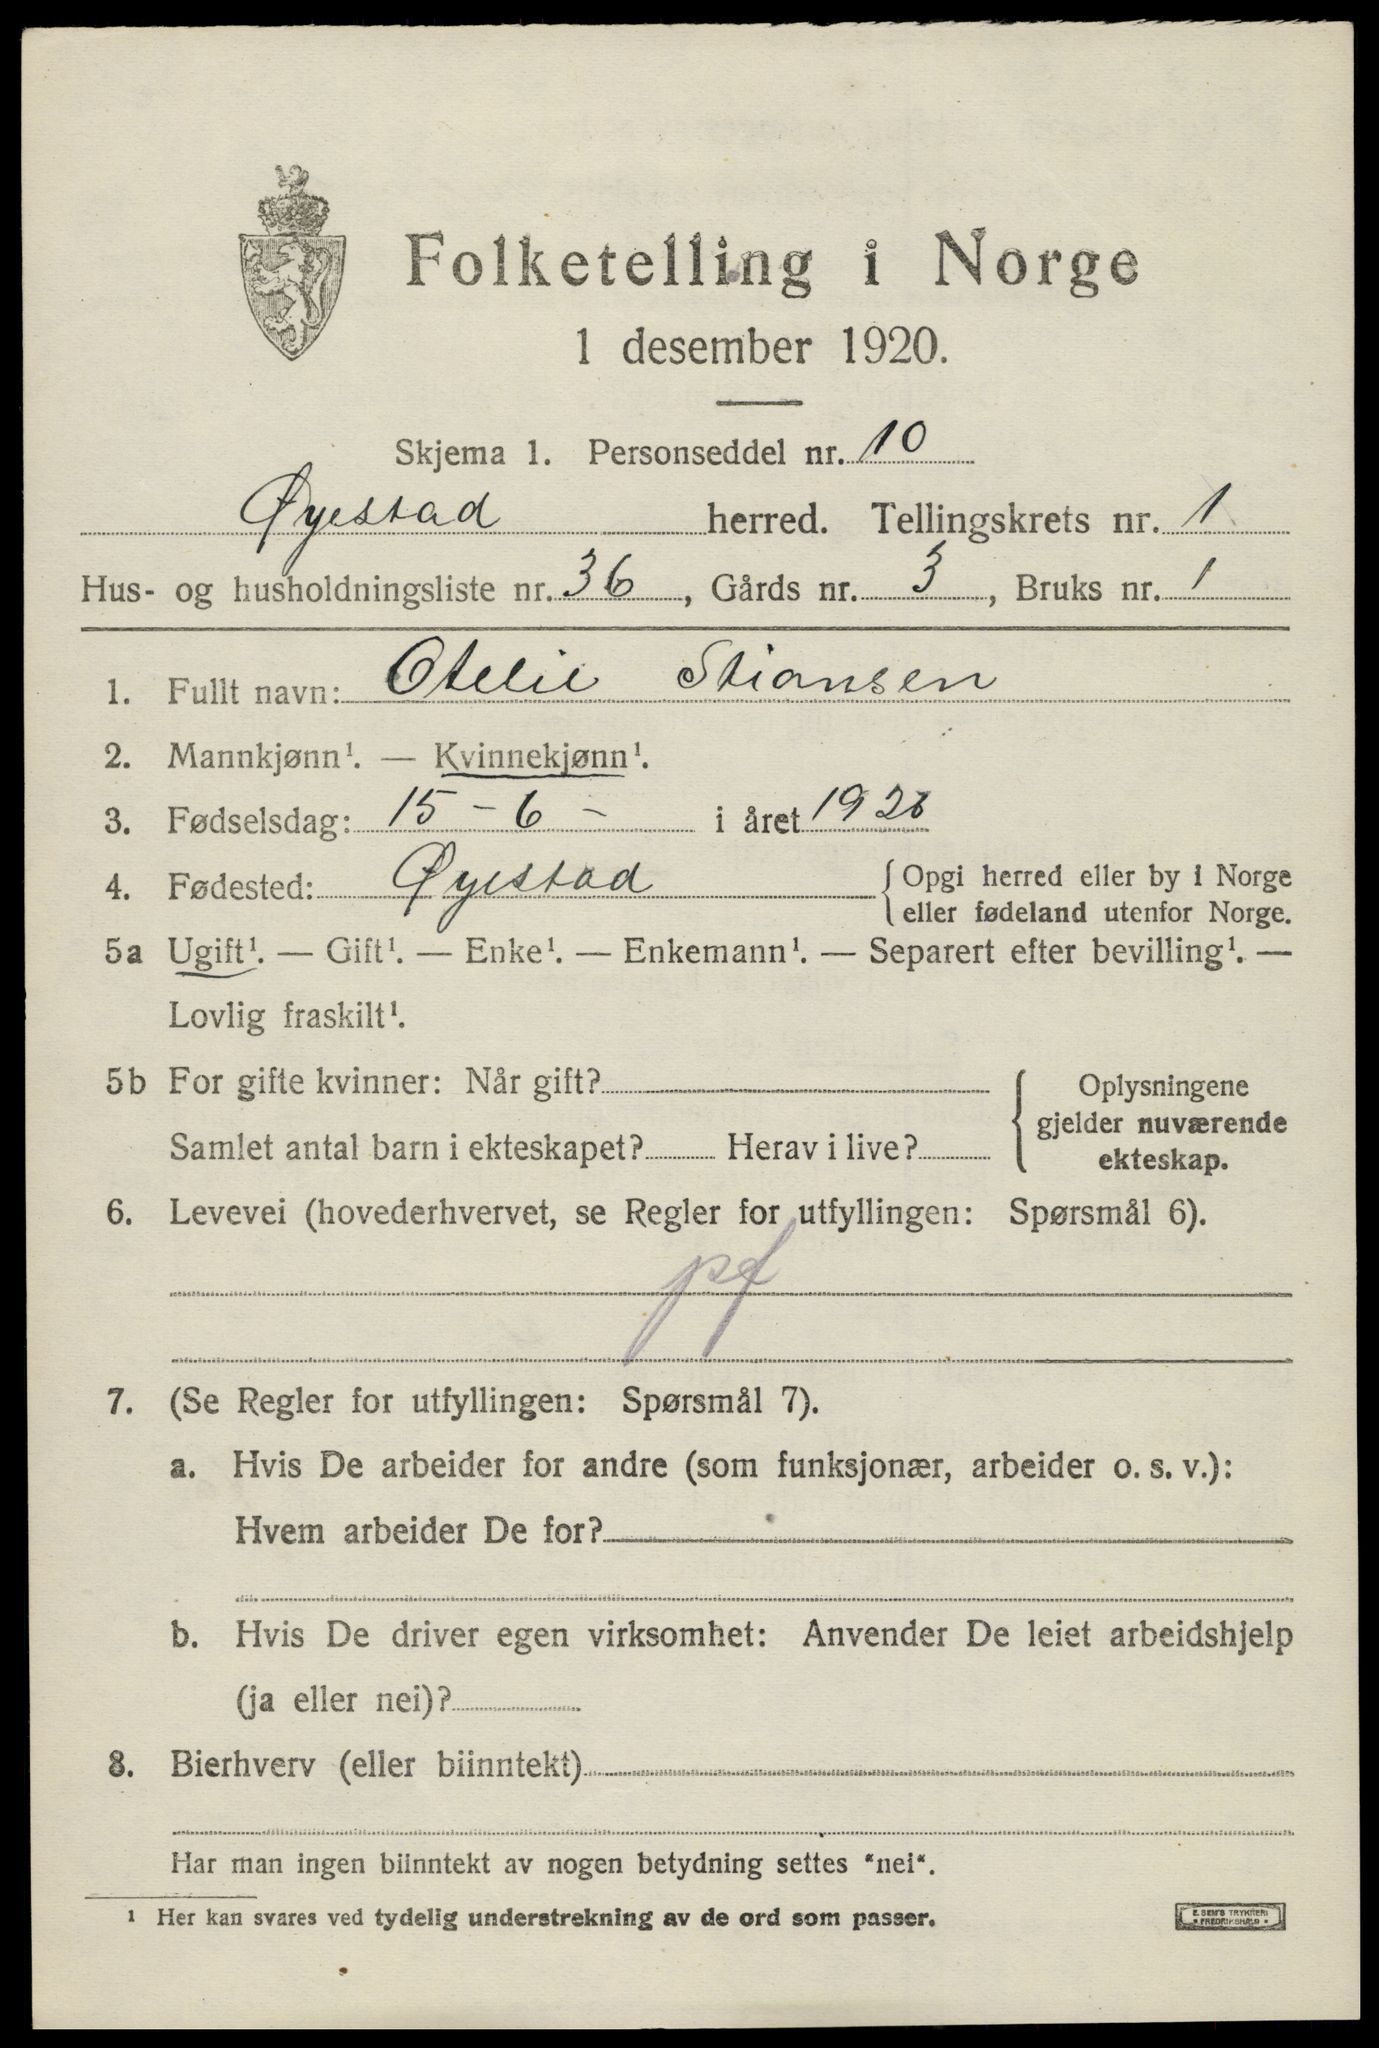 Folketelling i Norge
1 desember 1920.
Skjema 1. Personseddel nr. 10
Øyestad herred. Tellingskrets nr. 1
Hus- og husholdningsliste nr. 36, Gårds nr. 3, Bruks nr. 1
1. Fullt navn: Otelie Stiansen
2. Mannkjønn¹. — Kvinnekjønn¹.
3. Fødselsdag: 15 - 6 - i året
4. Fødested: Øyestad { Opgi herred eller by i Norge
eller fødeland utenfor Norge.
5a Ugift¹. — Gift¹. — Enke¹. — Enkemann¹. — Separert efter bevilling¹. —
Lovlig fraskilt¹.
5b For gifte kvinner: Når gift?
Samlet antal barn i ekteskapet? Herav i live?
{ Oplysningene
gjelder nuværende
ekteskap.
6. Levevei (hovederhvervet, se Regler for utfyllingen: Spørsmål 6).
pf
7. (Se Regler for utfyllingen: Spørsmål 7).
a. Hvis De arbeider for andre (som funksjonær, arbeider o. s. v.):
Hvem arbeider De for?
b. Hvis De driver egen virksomhet: Anvender De leiet arbeidshjelp
(ja eller nei)?
8. Bierhverv (eller biinntekt)
Har man ingen biinntekt av nogen betydning settes "nei".
¹ Her kan svares ved tydelig understrekning av de ord som passer.
E. SEM'S TRYKKERI
• FREDRIKSHALD •